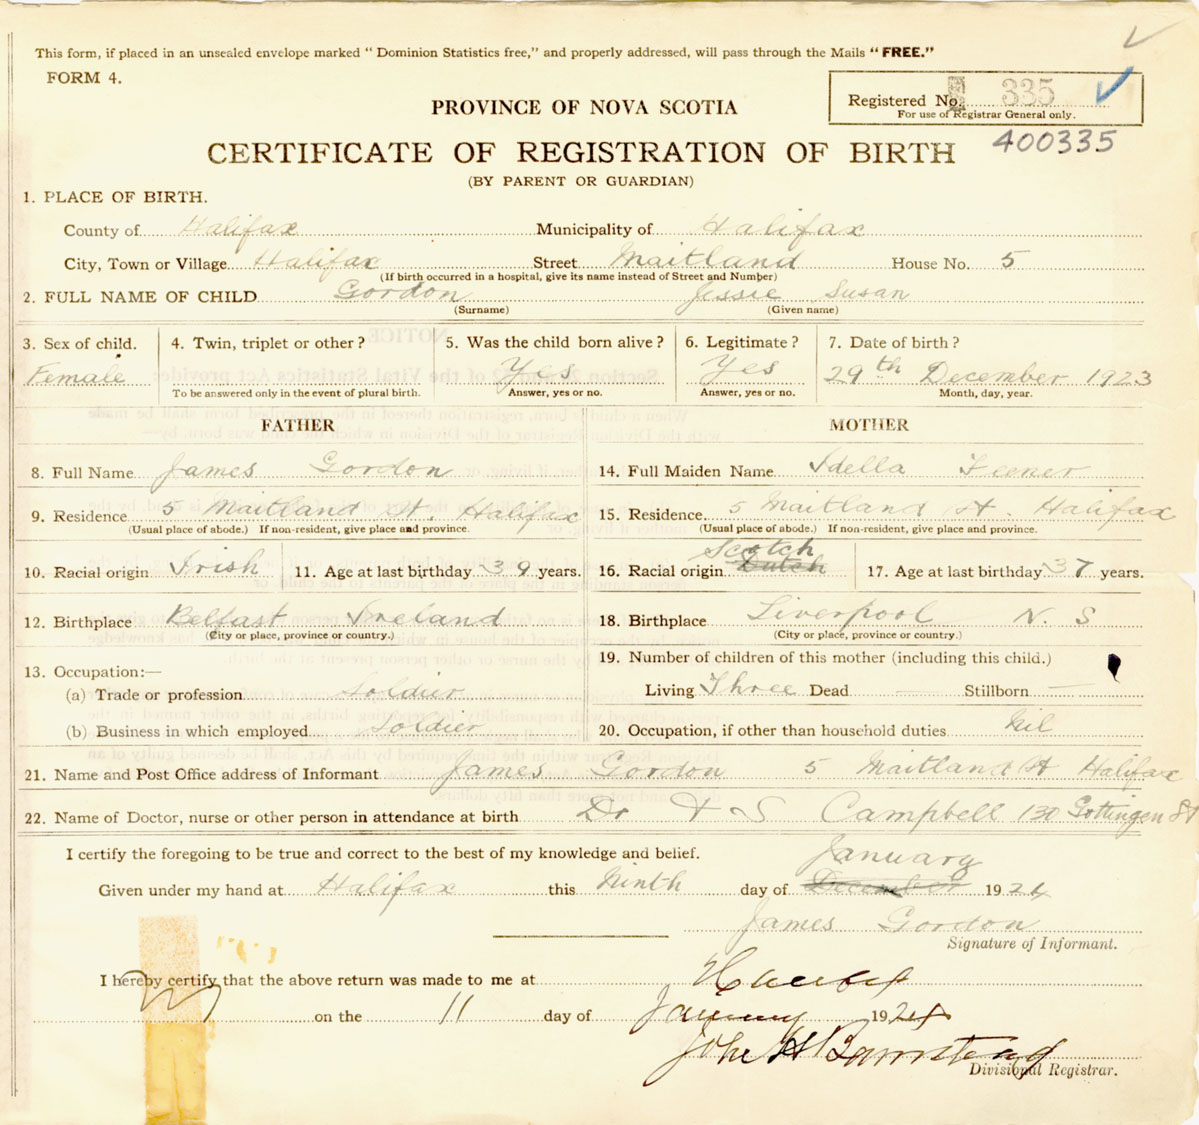 This form, if placed in an unsealed envelope marked “ Dominion Statistics free,” and properly addressed, will pass through the Mails “ FREE.”
FORM 4.
Registered No. 335
For use of Registrar General only.
PROVINCE OF NOVA SCOTIA
400335
CERTIFICATE OF REGISTRATION OF BIRTH
(BY PARENT OR GUARDIAN)
1. PLACE OF BIRTH.
County of Halifax Municipality of Halifax
City, Town or Village Halifax Street Maitland House No. 5
(If birth occurred in a hospital, give its name instead of Street and Number)
2. FULL NAME OF CHILD Gordon Jessie Susan
(Surname) (Given name)
3. Sex of child. 4. Twin, triplet or other ? 5. Was the child born alive ? 6. Legitimate ? 7. Date of birth ?
Female Yes Yes 29th December 1923
To be answered only in the event of plural birth. Answer, yes or no. Answer, yes or no. Month, day, year.
FATHER MOTHER
8. Full Name James Gordon 14. Full Maiden Name Idella Feener
9. Residence 5 Maitland St. Halifax 15. Residence 5 Maitland St. Halifax
(Usual place of abode.) If non-resident, give place and province. (Usual place of abode.) If non-resident, give place and province.
Scotch
10. Racial origin Irish 11. Age at last birthday 39 years. 16. Racial origin Dutch 17. Age at last birthday 37 years.
12. Birthplace Belfast Ireland 18. Birthplace Liverpool N. S
(City or place, province or country.) (City or place, province or country.)
13. Occupation:— 19. Number of children of this mother (including this child.)
(a) Trade or profession Soldier Living Three Dead — Stillborn —
(b) Business in which employed Soldier 20. Occupation, if other than household duties. Nil
21. Name and Post Office address of Informant James Gordon 5 Maitland St Halifax
22. Name of Doctor, nurse or other person in attendance at birth Dr S Campbell 130 Gottingen St
I certify the foregoing to be true and correct to the best of my knowledge and belief.
January
Given under my hand at Halifax this Ninth day of December 1924
James Gordon
Signature of Informant.
I hereby certify that the above return was made to me at Halifax
on the 11 day of January 1924
John H Barnstead
Divisional Registrar.